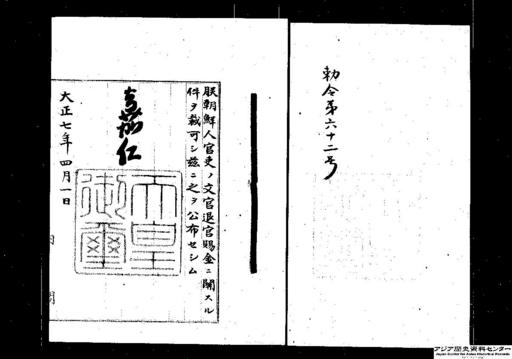 勅令第六十二号
朕朝鮮人官吏ノ文官退官賜金ニ関スル
件ヲ裁可シ茲ニ之ヲ公布セシム
嘉仁
天皇
御璽
大正七年四月一日
アジア歴史資料センター
Japan Center for Asian Historical Records